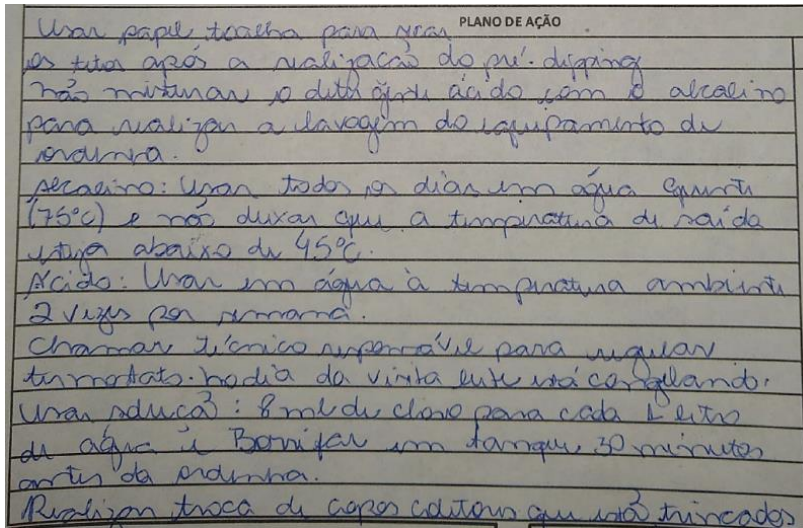 PLANO DE AÇÃO
Usar papel toalha para secar
os tetos após a realização do pré-dipping
não misturar o detergente ácido com o alcalino
para realizar a lavagem do equipamento de
ordenha.
Alcalino: Usar todos os dias em água quente
(75°C) e não deixar que a temperatura de saída
esteja abaixo de 45°C.
Ácido: Usar em água à temperatura ambiente
2 vezes por semana.
Chamar técnico responsável para regular
termostato. no dia da visita leite está congelando.
Usar solução: 8 ml de cloro para cada 1 litro
de água e Borrifar em tanque, 30 minutos
antes da ordenha.
Realizar troca de copos coletores que estão trincados